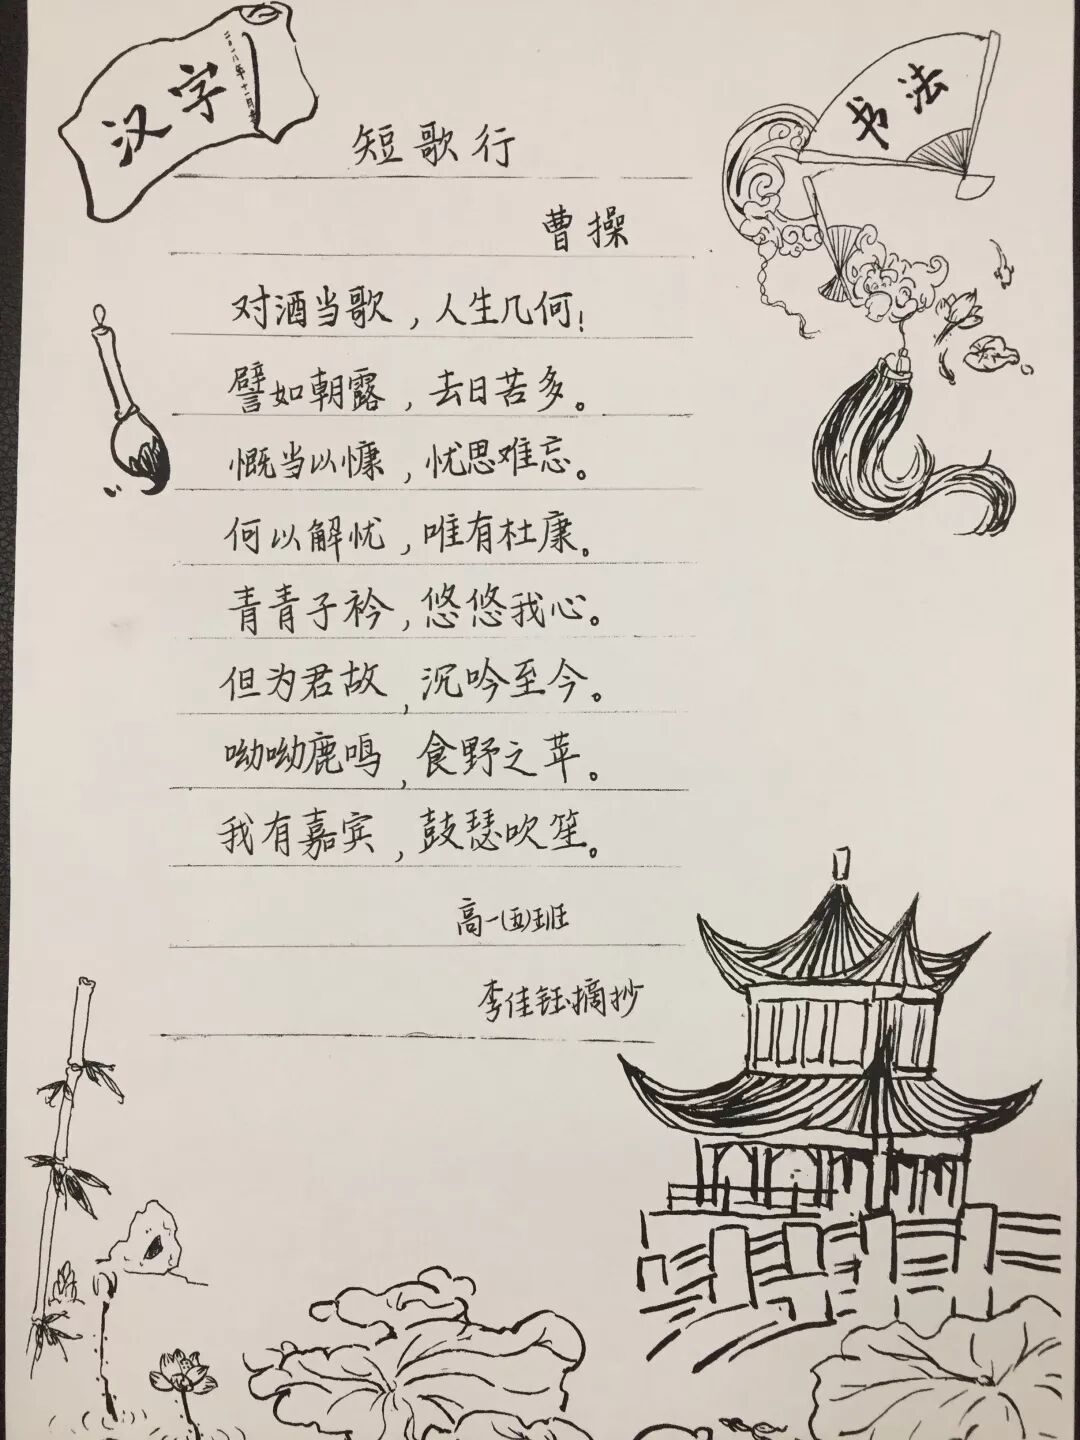 汉字
二〇一八年十一月
书法
短歌行
曹操
对酒当歌，人生几何！
譬如朝露，去日苦多。
慨当以慷，忧思难忘。
何以解忧，唯有杜康。
青青子衿，悠悠我心。
但为君故，沉吟至今。
呦呦鹿鸣，食野之苹。
我有嘉宾，鼓瑟吹笙。
高一(五)班
李佳钰摘抄